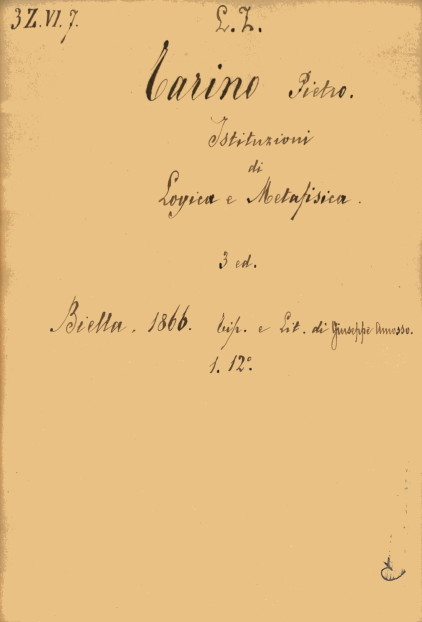 3Z.VI.7.
L.Z.
Tarino Pietro.
Istituzioni
di
Logica e Metafisica.
3 ed.
Biella. 1866. Tip. e Lit. di Giuseppe Amosso.
1. 12°.